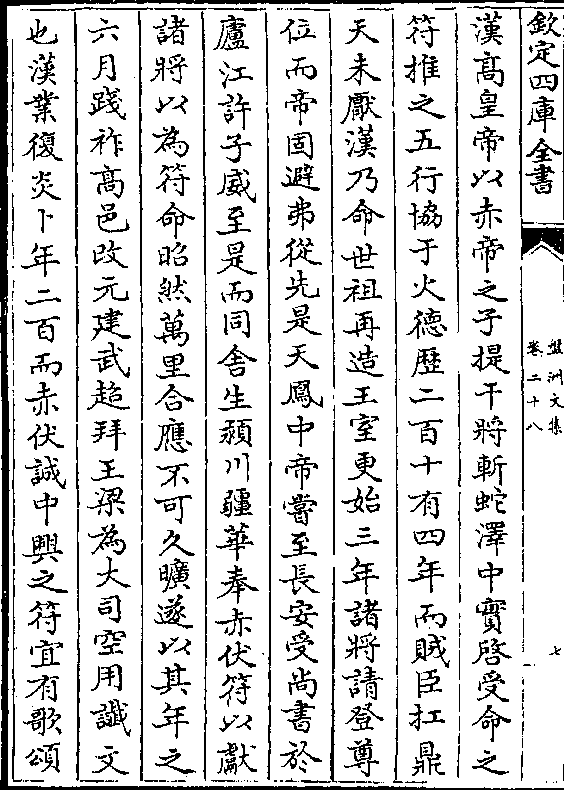 欽定四庫全書
盤洲文集
卷二十八
七
漢髙皇帝以赤帝之子提干將斬蛇澤中實啓受命之
符推之五行協于火德歴二百十有四年而賊臣扛鼎
天未厭漢乃命世祖再造王室更始三年諸將請登尊
位而帝固避弗從先是天鳳中帝嘗至長安受尚書於
廬江許子威至是而同舍生潁川疆華奉赤伏符以獻
諸將以為符命昭然萬里合應不可久曠遂以其年之
六月踐祚髙邑改元建武趨拜王梁為大司空用讖文
也漢業復炎卜年二百而赤伏誠中興之符宜有歌頌